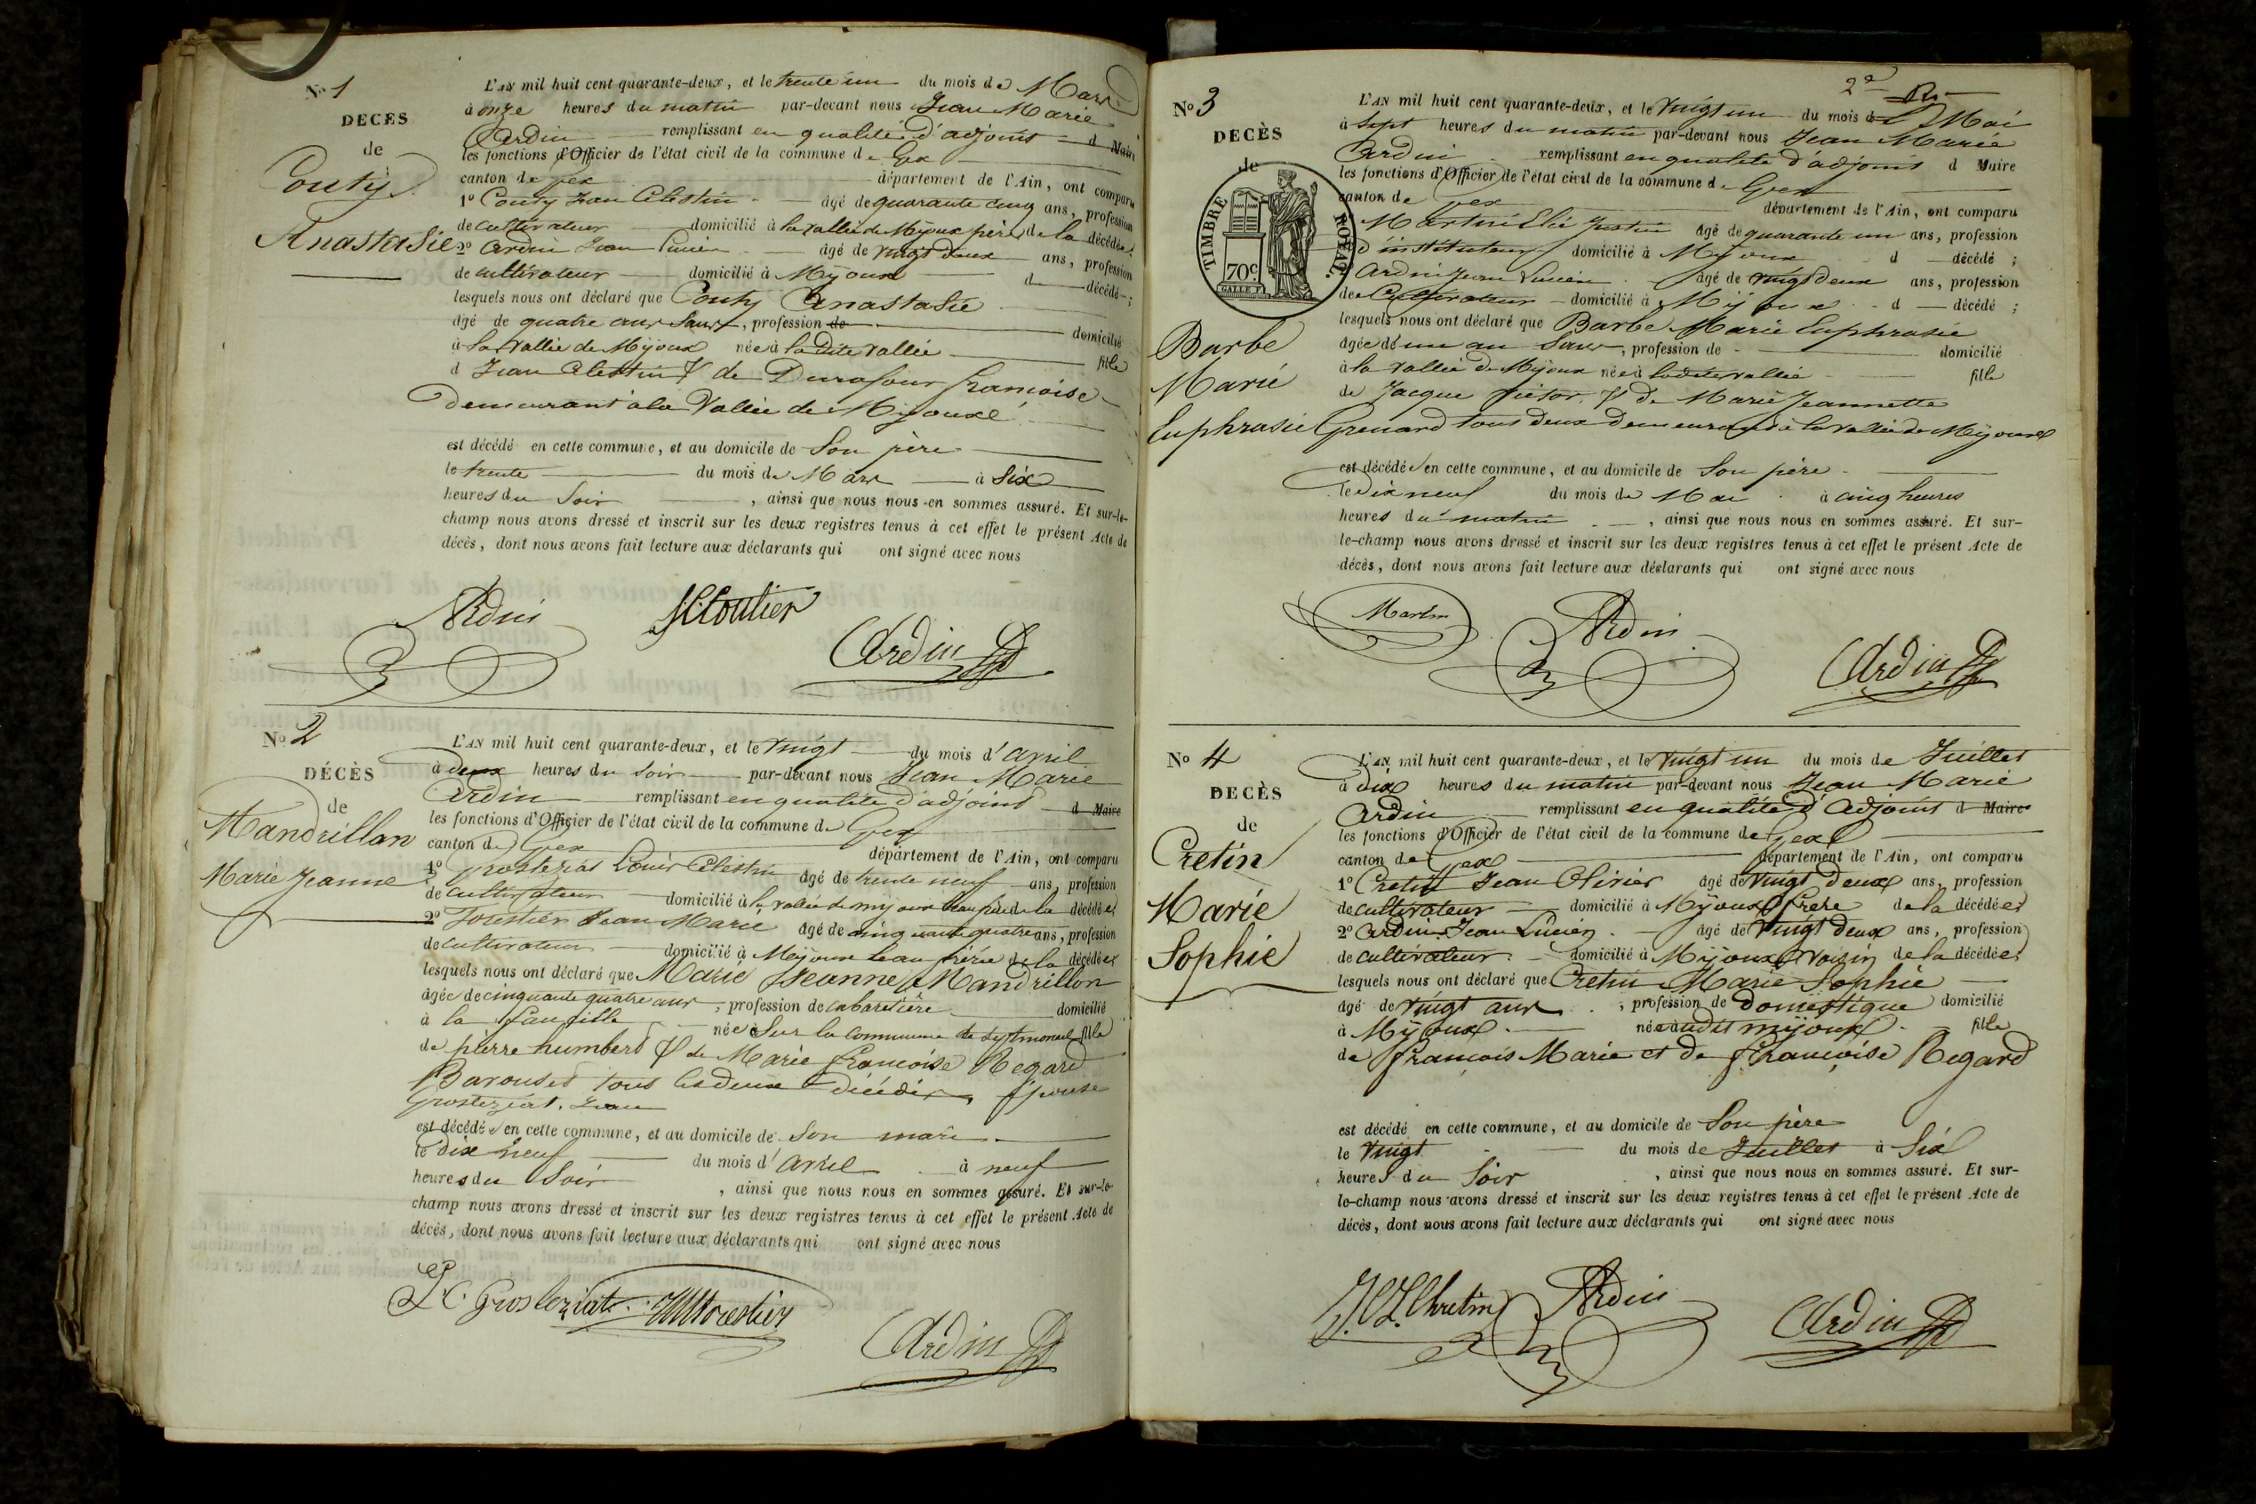 No 1
DECES
de
Couty
Anastasie
L'AN mil huit cent quarante-deux, et le trente un du mois de Mars
à onze heures du matin par-devant nous Jean Marie
Ardin remplissant en qualité d'adjoint d Maire
les fonctions d'Officier de l'état civil de la commune de Gex
canton de Gex département de l'Ain, ont comparu
1o Couty Jean Celestin âgé de quarante cinq ans, profession
de cultivateur domicilié à la vallée de Mijoux père de la décédée;
2o Ardin Jean Lucien âgé de vingt deux ans, profession
de cultivateur domicilié à Mijoux d décédé;
lesquels nous ont déclaré que Couty Anastasie
âgé de quatre ans , profession de domicilié
à la vallée de Mijoux née à la dite vallée fille
d Jean Celestin & de Durafour francoise
demeurant à la Vallée de Mijoux
est décédé en cette commune, et au domicile de Son père
le trente du mois de Mars à Six
heures du Soir , ainsi que nous nous en sommes assuré. Et sur-le-
champ nous avons dressé et inscrit sur les deux registres tenus à cet effet le présent Acte de
décès, dont nous avons fait lecture aux déclarants qui ont signé avec nous
Ardin
Ardin
No 2
DÉCÈS
de
Mandrillon
Marie Jeanne
L'AN mil huit cent quarante-deux, et le vingt du mois d'avril
à deux heures du Soir par-devant nous Jean Marie
Ardin remplissant en qualité d'adjoint d Maire
les fonctions d'Officier de l'état civil de la commune de Gex
canton de Gex département de l'Ain, ont comparu
1o Grosleziat Louis Celestin âgé de trente neuf ans, profession
de cultivateur domicilié à la vallée de mijoux de la décédée
2o Forestier Jean Marie âgé de cinquante quatre ans, profession
de cultivateur domicilié à Mijoux beau frère de la décédée
lesquels nous ont déclaré que Marie Jeanne Mandrillon
âgée de cinquante quatre ans, profession de cabaretière domicilié
à la faucille née à Sur la commune de Septmoncel fille
de pierre humbert & de Marie francoise Regard
tous les deux décédés, épouse
Grosleziat Jean
est décédé en cette commune, et au domicile de Son mari
le dix neuf du mois d'avril à neuf
heures du Soir , ainsi que nous nous en sommes assuré. Et sur-le-
champ nous avons dressé et inscrit sur les deux registres tenus à cet effet le présent Acte de
décès, dont nous avons fait lecture aux déclarants qui ont signé avec nous
L C. Grosleziat
Ardin
2e
No 3
DECÈS
de
TIMBRE ROYAL.
70c
Barbe
Marie
Euphrasie
L'AN mil huit cent quarante-deux, et le vingt un du mois de Mai
à Sept heures du matin par-devant nous Jean Marie
Ardin remplissant en qualité d'adjoint d Maire
les fonctions d'Officier de l'état civil de la commune de Gex
canton de Gex département de l'Ain, ont comparu
Martin Elie Justin âgé de quarante un ans, profession
d'instituteur domicilié à Mijoux d décédé;
Ardin Jean Lucien âgé de vingt deux ans, profession
de Cultivateur domicilié à Mijoux d décédé;
lesquels nous ont déclaré que Barbe Marie Euphrasie
âgée de un an , profession de domicilié
à la vallée de Mijoux née à la dite vallée fille
de Jacque Victor & de Marie Jeannette
Grenard tous deux demeurand à la vallée de Mijoux
est décédée en cette commune, et au domicile de Son père
le dix neuf du mois de Mai à cinq heures
heures du matin , ainsi que nous nous en sommes assuré. Et sur-
le-champ nous avons dressé et inscrit sur les deux registres tenus à cet effet le présent Acte de
décès, dont nous avons fait lecture aux déclarants qui ont signé avec nous
Martin
Ardin
Ardin
No 4
DECÈS
de
Cretin
Marie
Sophie
L'AN mil huit cent quarante-deux, et le vingt un du mois de Juillet
à dix heures du matin par-devant nous Jean Marie
Ardin remplissant en qualité d'Adjoint d Maire
les fonctions d'Officier de l'état civil de la commune de Gex
canton de Gex département de l'Ain, ont comparu
1o Cretin Jean Olivier âgé de vingt deux ans, profession
de cultivateur domicilié à Mijoux frère de la décédée;
2o Ardin Jean Lucien âgé de vingt deux ans, profession
de cultivateur domicilié à Mijoux voisin de la décédée;
lesquels nous ont déclaré que Cretin Marie Sophie
âgé de vingt ans, profession de domestique domicilié
à Mijoux née audit mijoux fille
de François Marie et de Françoise Regard
est décédé en cette commune, et au domicile de Son père
le vingt du mois de Juillet à Six
heures du Soir , ainsi que nous nous en sommes assuré. Et sur-
le-champ nous avons dressé et inscrit sur les deux registres tenus à cet effet le présent Acte de
décès, dont nous avons fait lecture aux déclarants qui ont signé avec nous
Ardin
Ardin